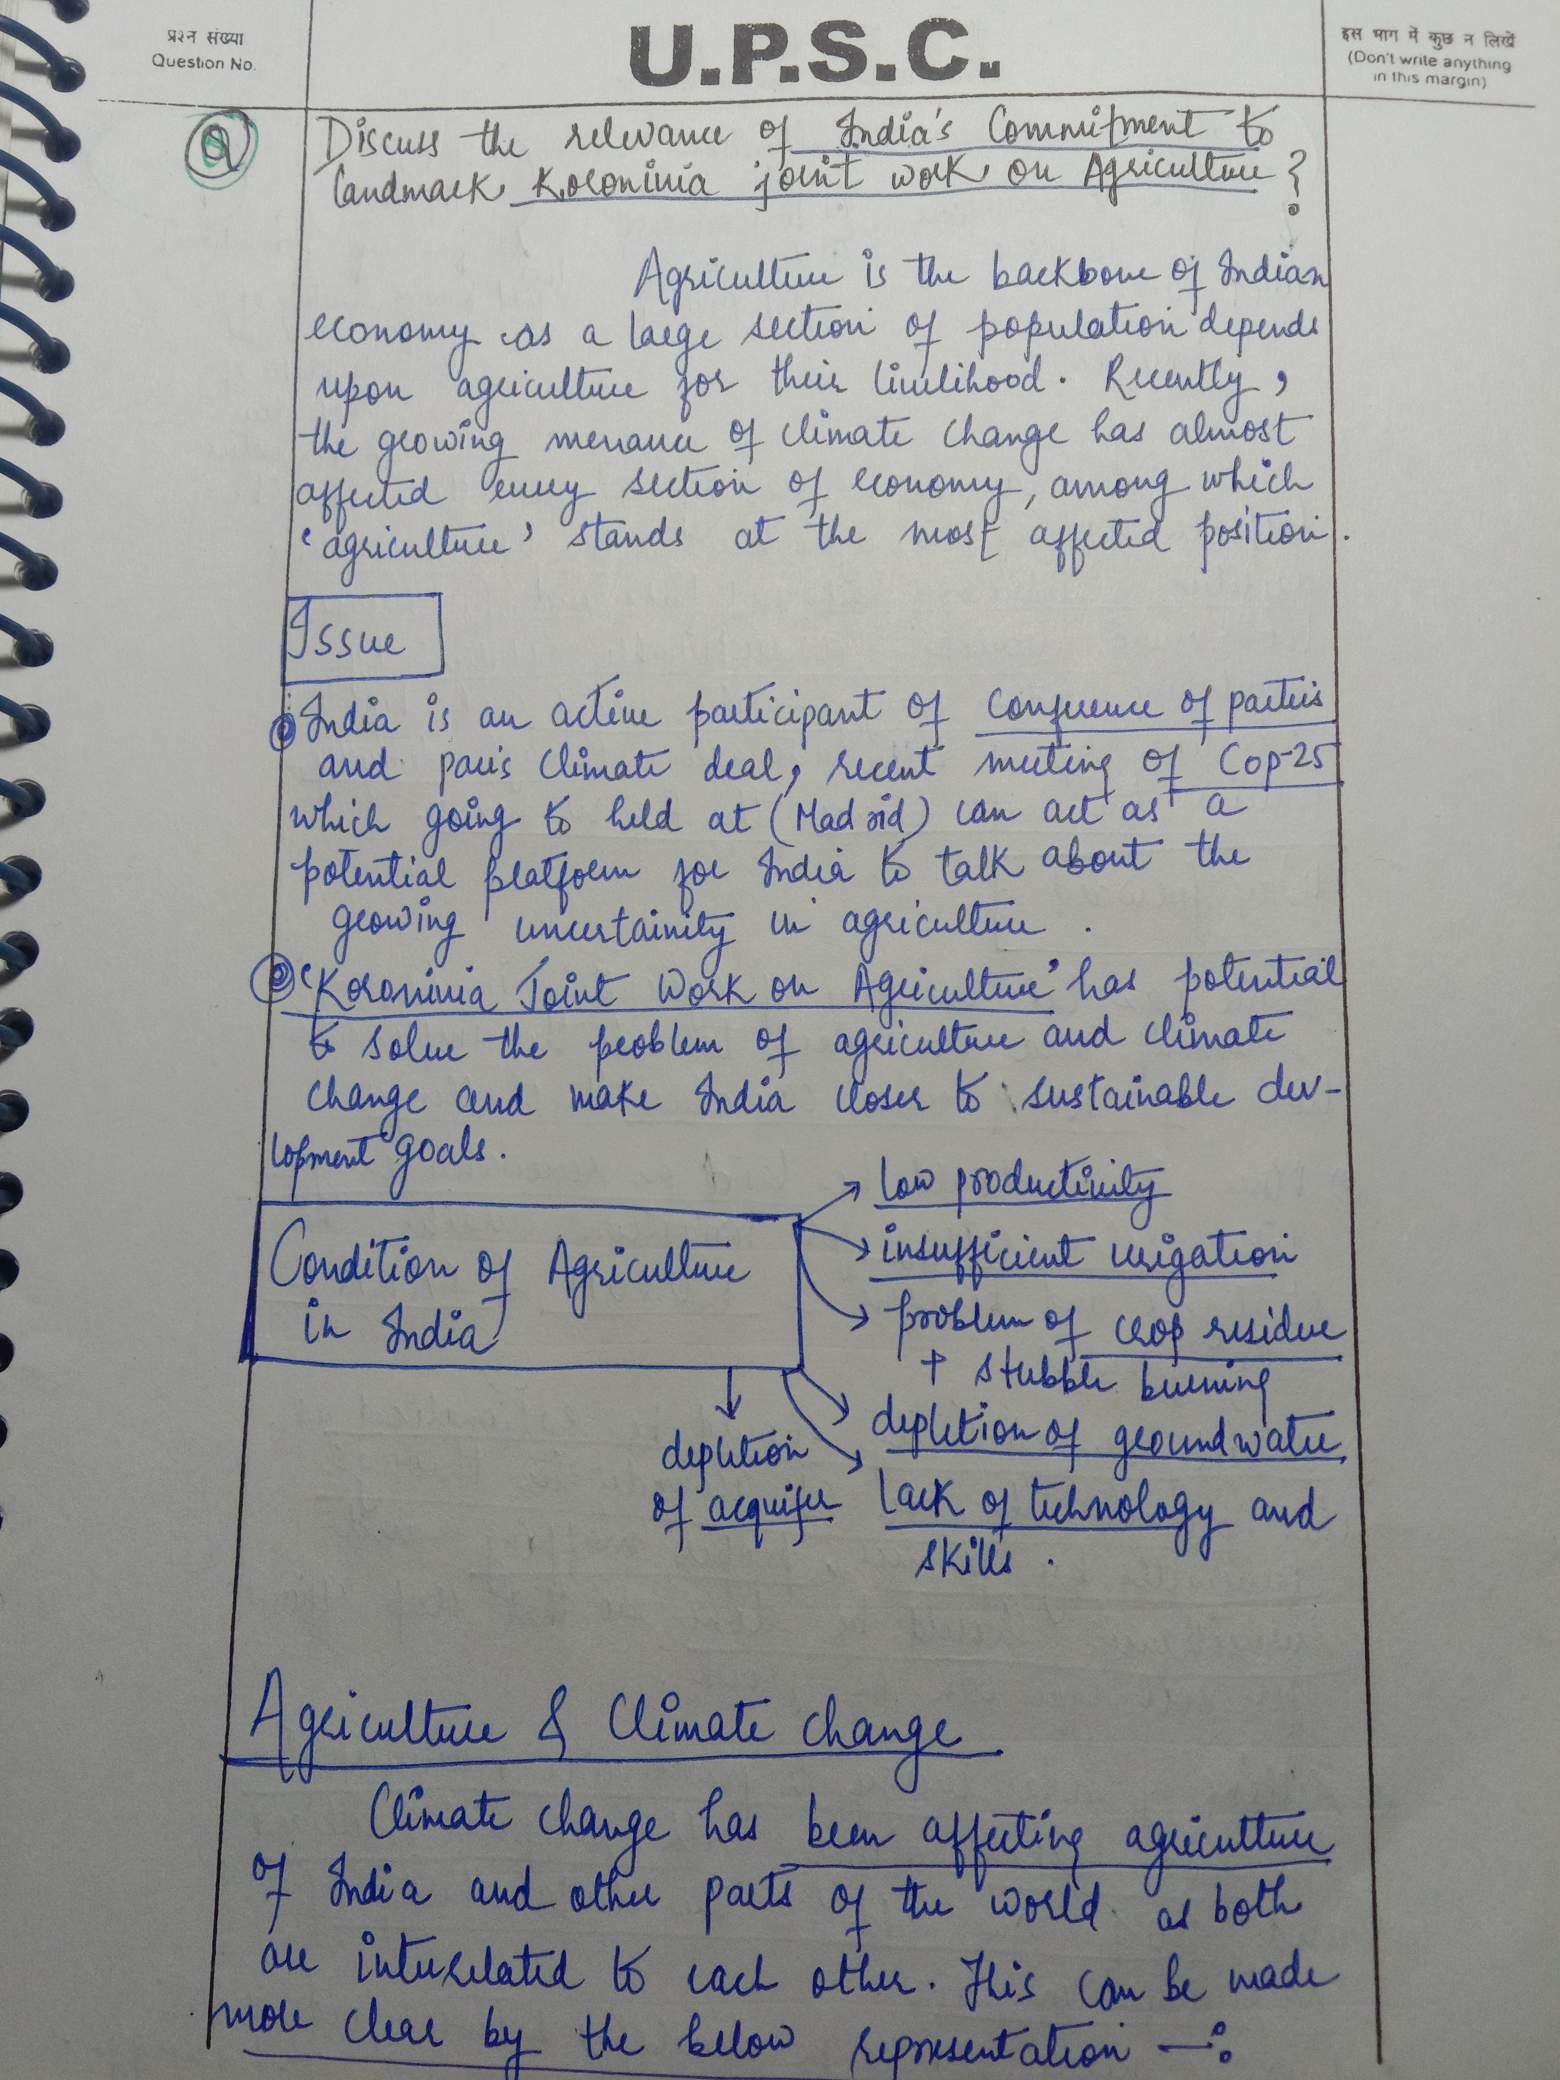 प्रश्न संख्या
Question No.
U.P.S.C.
इस भाग में कुछ न लिखें
(Don't write anything
in this margin)
Q
Discuss the relevance of India's Commitment to
landmark Koronivia joint work on Agriculture ?
Agriculture is the backbone of Indian
economy as a large section of population depends
upon agriculture for their livelihood. Recently,
the growing menance of climate change has almost
affected every section of economy, among which
'agriculture' stands at the most affected position.
Issue
India is an active participant of conference of parteis
and paris climate deal, recent meeting of Cop-25
which going to held at (Madrid) can act as a
potential platform for India to talk about the
growing uncertainity in agriculture.
'Koronivia Joint Work on Agriculture' has potential
to solve the problem of agriculture and climate
change and make India closer to sustainable dev-
lopment goals.
Condition of Agriculture
in India
low productivity
insufficient irrigation
problem of crop residue
+ stubble burning
depletion of groundwater
lack of technology and
skills.
depletion
of acquifer
Agriculture & Climate change
Climate change has been affecting agriculture
of India and other parts of the world as both
are interrelated to each other. This can be made
more clear by the below representation —: